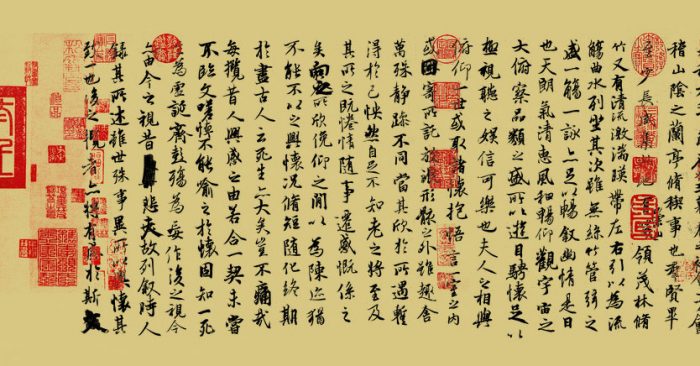 稽山陰之蘭亭脩稧事也羣賢畢
至少長咸集此地有峻領茂林脩
竹又有清流激湍暎帶左右引以為流
觴曲水列坐其次雖無絲竹管弦之
盛一觴一詠亦足以暢敘幽情是日
也天朗氣清惠風和暢仰觀宇宙之
大俯察品類之盛所以遊目騁懷足以
極視聽之娛信可樂也夫人之相與
俯仰一世或取諸懷抱悟言一室之內
或因寄所託放浪形骸之外雖趣舍
萬殊靜躁不同當其欣於所遇暫
得於己怏然自足不知老之將至及
其所之既惓情隨事遷感慨係之
矣向之所欣俛仰之間以為陳迹猶
不能不以之興懷況脩短隨化終期
於盡古人云死生亦大矣豈不痛哉
每攬昔人興感之由若合一契未嘗
不臨文嗟悼不能喻之於懷固知一死
生為虛誕齊彭殤為妄作後之視今
亦由今之視昔悲夫故列敘時人
錄其所述雖世殊事異所以興懷其
致一也後之攬者亦將有感於斯文